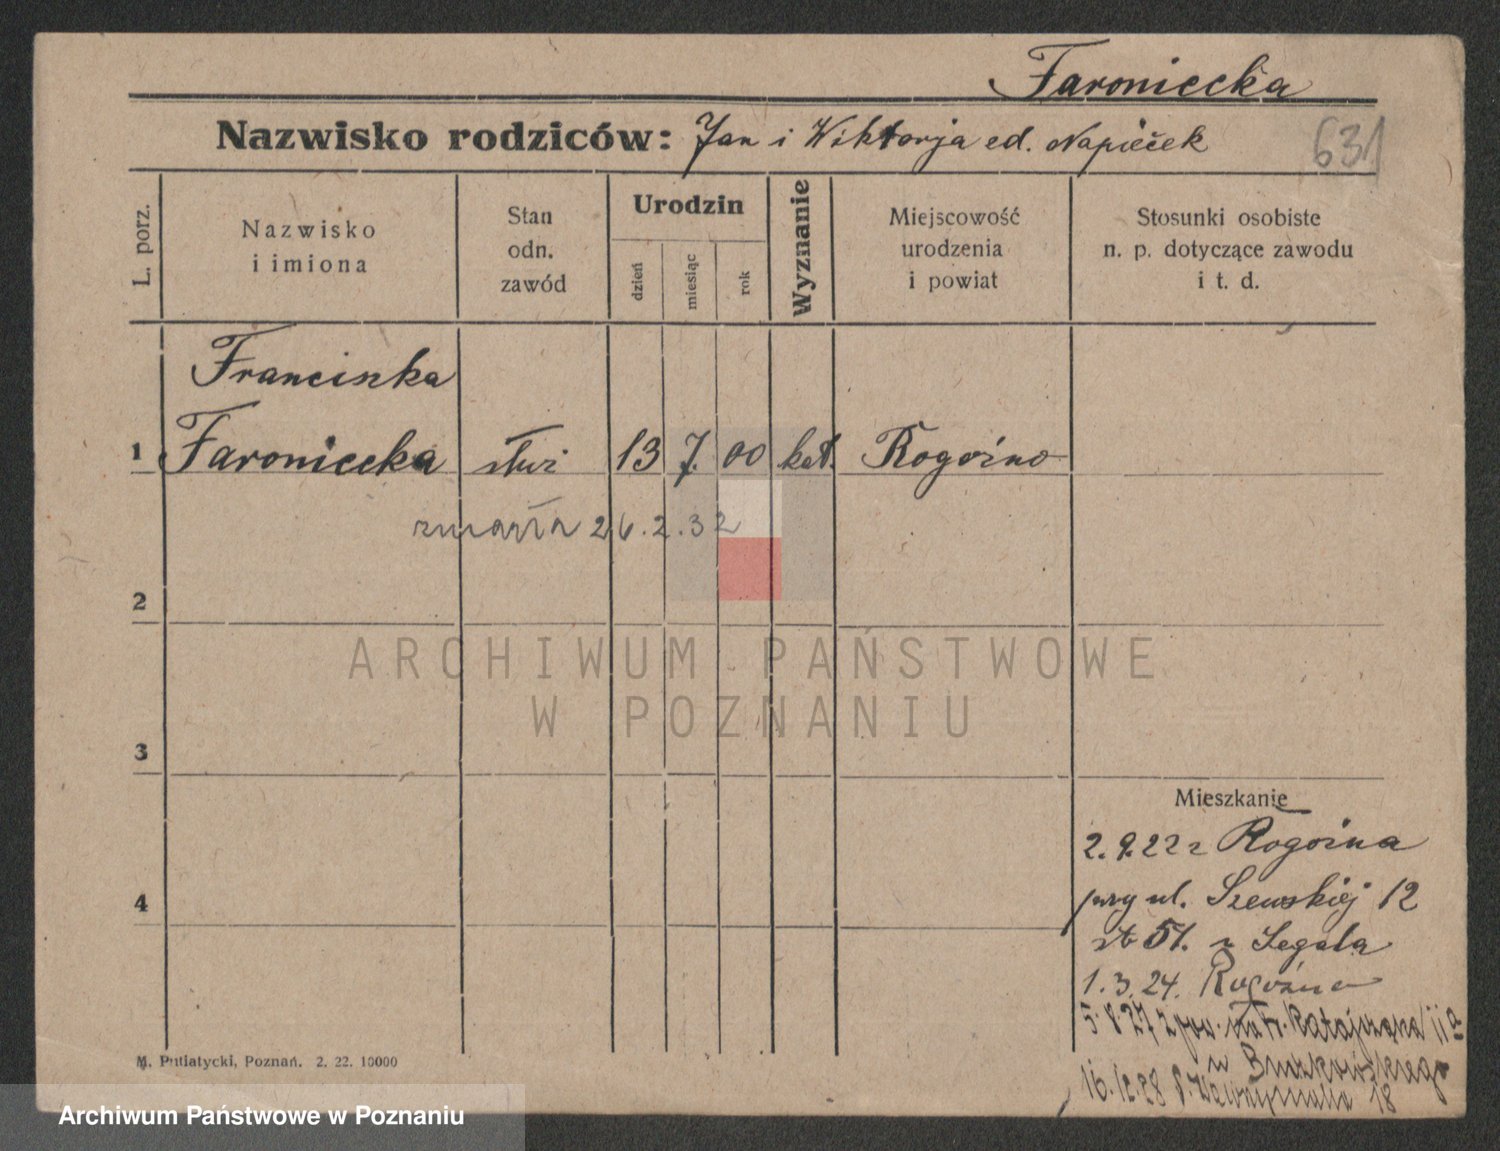 Faroniecka
Nazwisko rodziców: Jan i Wiktorja ed. Napieček
631
L. porz.
Nazwisko
i imiona
Stan
odn.
zawód
Urodzin
dzień
miesiąc
rok
Wyznanie
Miejscowość
urodzenia
i powiat
Stosunki osobiste
n. p. dotyczące zawodu
i t. d.
Franciszka
1 Faroniecka służ 13 7. 00 kat. Rogoźno
zmarła 26.2.32
2
ARCHIWUM PAŃSTWOWE
W POZNANIU
3
Mieszkanie
2.9.22 z Rogoźna
przy ul. Szewskiej 12
51. u Segala
4
1.3.24. Rogoźno
5.8.27 z pow. Ratajczaka 11a
u Buszkowskiego
16.12.28 18
M. Putiatycki, Poznań. 2. 22. 10000
Archiwum Państwowe w Poznaniu